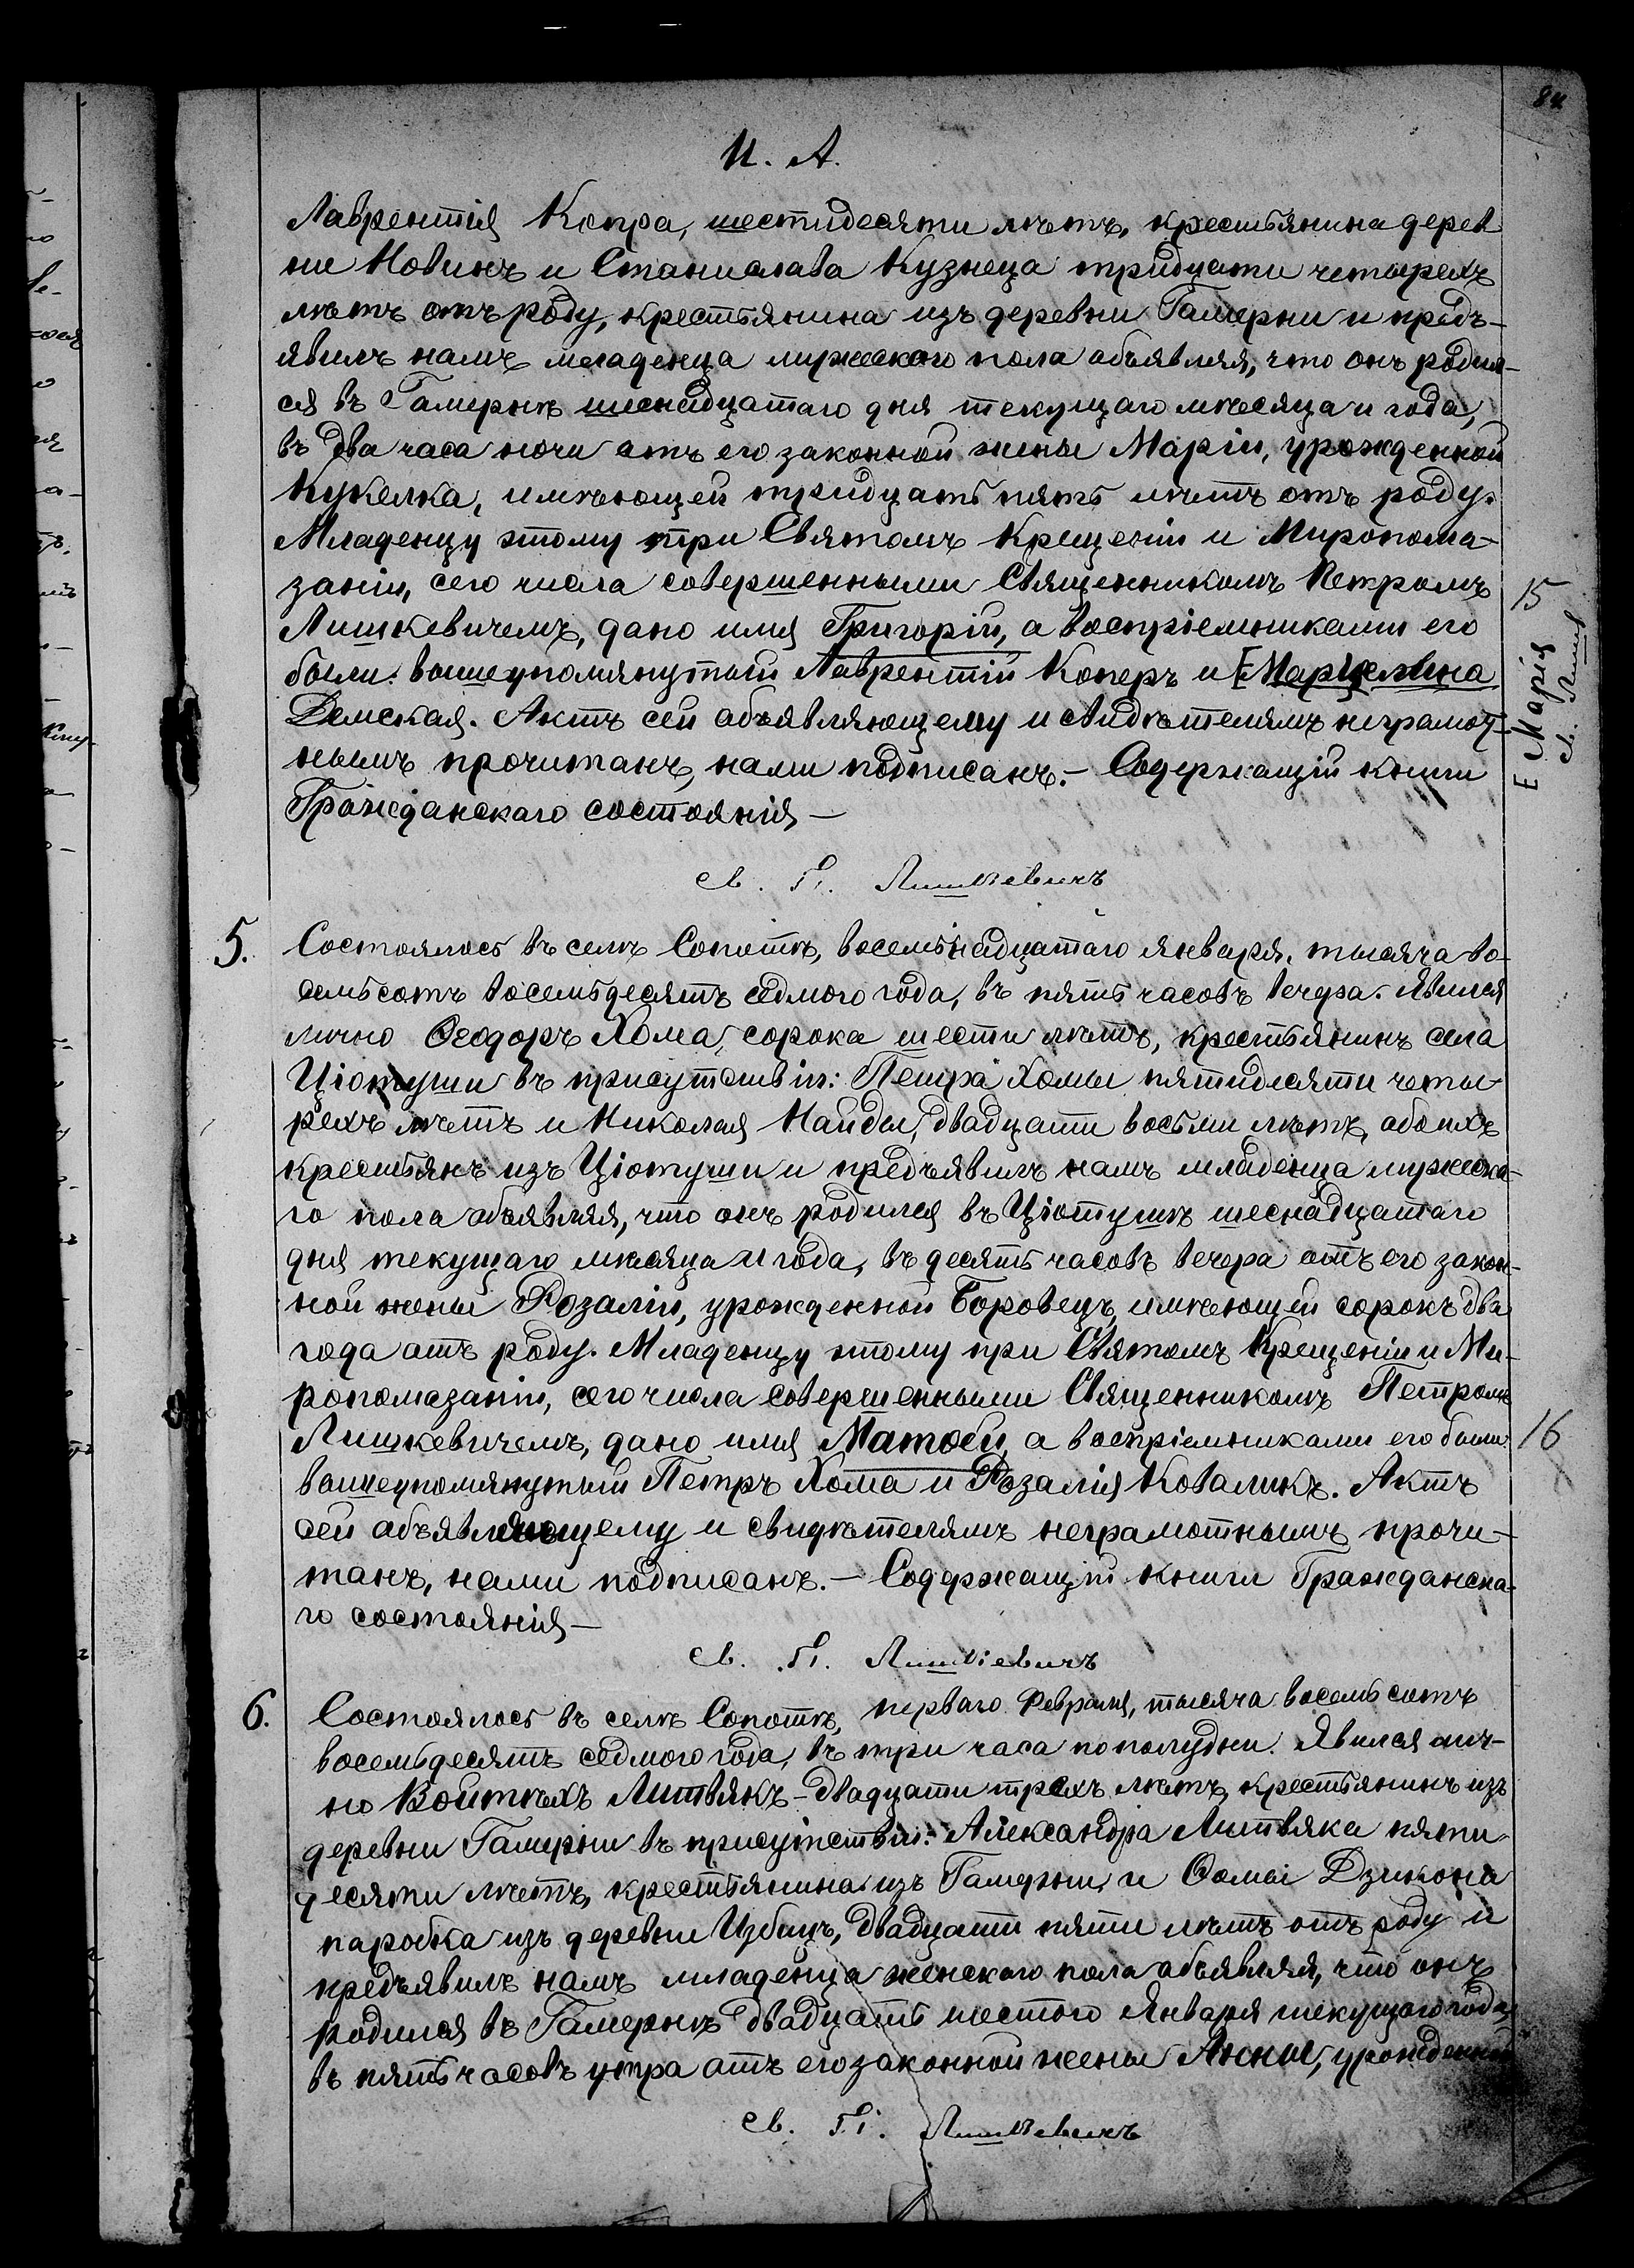 И. А.
Лаврентія Копра, шестидесяти лѣтъ, крестьянина дерев
ни Новинъ и Станислава Кузнеца тридцати четырехъ
лѣтъ отъ роду, крестьянина изъ деревни Гамерни и предъ-
явилъ намъ младенца мужескаго пола объявляя, что онъ родил-
ся въ Гамернѣ шеснадцатаго дня текущаго мѣсяца и года,
въ два часа ночи отъ его законной жены Маріи, урожденной
Кукелка, имѣющей тридцать пять лѣтъ отъ роду.
Младенцу этому при Святомъ Крещеніи и Миропома-
заніи, сего числа совершенными Священникомъ Петромъ
Лишкевичемъ, дано имя Григорій, а воспріемниками его
были: вышеупомянутый Лаврентій Коперъ и Е Марцелина
Демская. Актъ сей объявляющему и свидѣтелямъ неграмот-
нымъ прочитанъ, нами подписанъ. – Содержащій книги
Гражданскаго состоянія –
15
Е Марія
Кс. П. Лишкевичъ
5. Состоялось въ селѣ Сопотѣ, восемьнадцатаго января, тысяча во-
семьсотъ восемьдесятъ седмого года, въ пять часовъ вечера. Явился
лично Ѳеодоръ Хома, сорока шести лѣтъ, крестьянинъ села
Ціотуши въ присутствіи: Петра Хомы пятидесяти четы-
рехъ лѣтъ и Николая Найды, двадцати восьми лѣтъ, обоихъ
крестьянъ изъ Ціотуши и предъявилъ намъ младенца мужеска-
го пола объявляя, что онъ родился въ Ціотушѣ шеснадцатаго
дня текущаго мѣсяца и года, въ десять часовъ вечера отъ его закон-
ной жены Розаліи, урожденной Боровецъ, имѣющей сорокъ два
года отъ роду. Младенцу этому при Святомъ Крещеніи и Ми-
ропомазаніи, сего числа совершенными Священникомъ Петромъ
Лишкевичемъ, дано имя Матѳей, а воспріемниками его были:
16
вышеупомянутый Петръ Хома и Розалія Коваликъ. Актъ
сей объявляющему и свидѣтелямъ неграмотнымъ прочи-
танъ, нами подписанъ. – Содержащій книги Гражданска-
го состоянія –
Кс. П. Лишкевичъ
6. Состоялось въ селѣ Сопотѣ, перваго Февраля, тысяча восемьсотъ
восемьдесятъ седмого года, въ три часа пополудни. Явился лич-
но Войтѣхъ Литвякъ – двадцати трехъ лѣтъ, крестьянинъ изъ
деревни Гамерни въ присутствіи: Александра Литвяка пяти-
десяти лѣтъ, крестьянина изъ Гамерни, и Ѳомы Дзикона
паробка изъ деревни Избицъ, двадцати пяти лѣтъ отъ роду и
предъявилъ намъ младенца женскаго пола объявляя, что онъ
родился въ Гамернѣ двадцать шестого Января текущаго года,
въ пять часовъ утра отъ его законной жены Анны, урожденной
Кс. П. Лишкевичъ